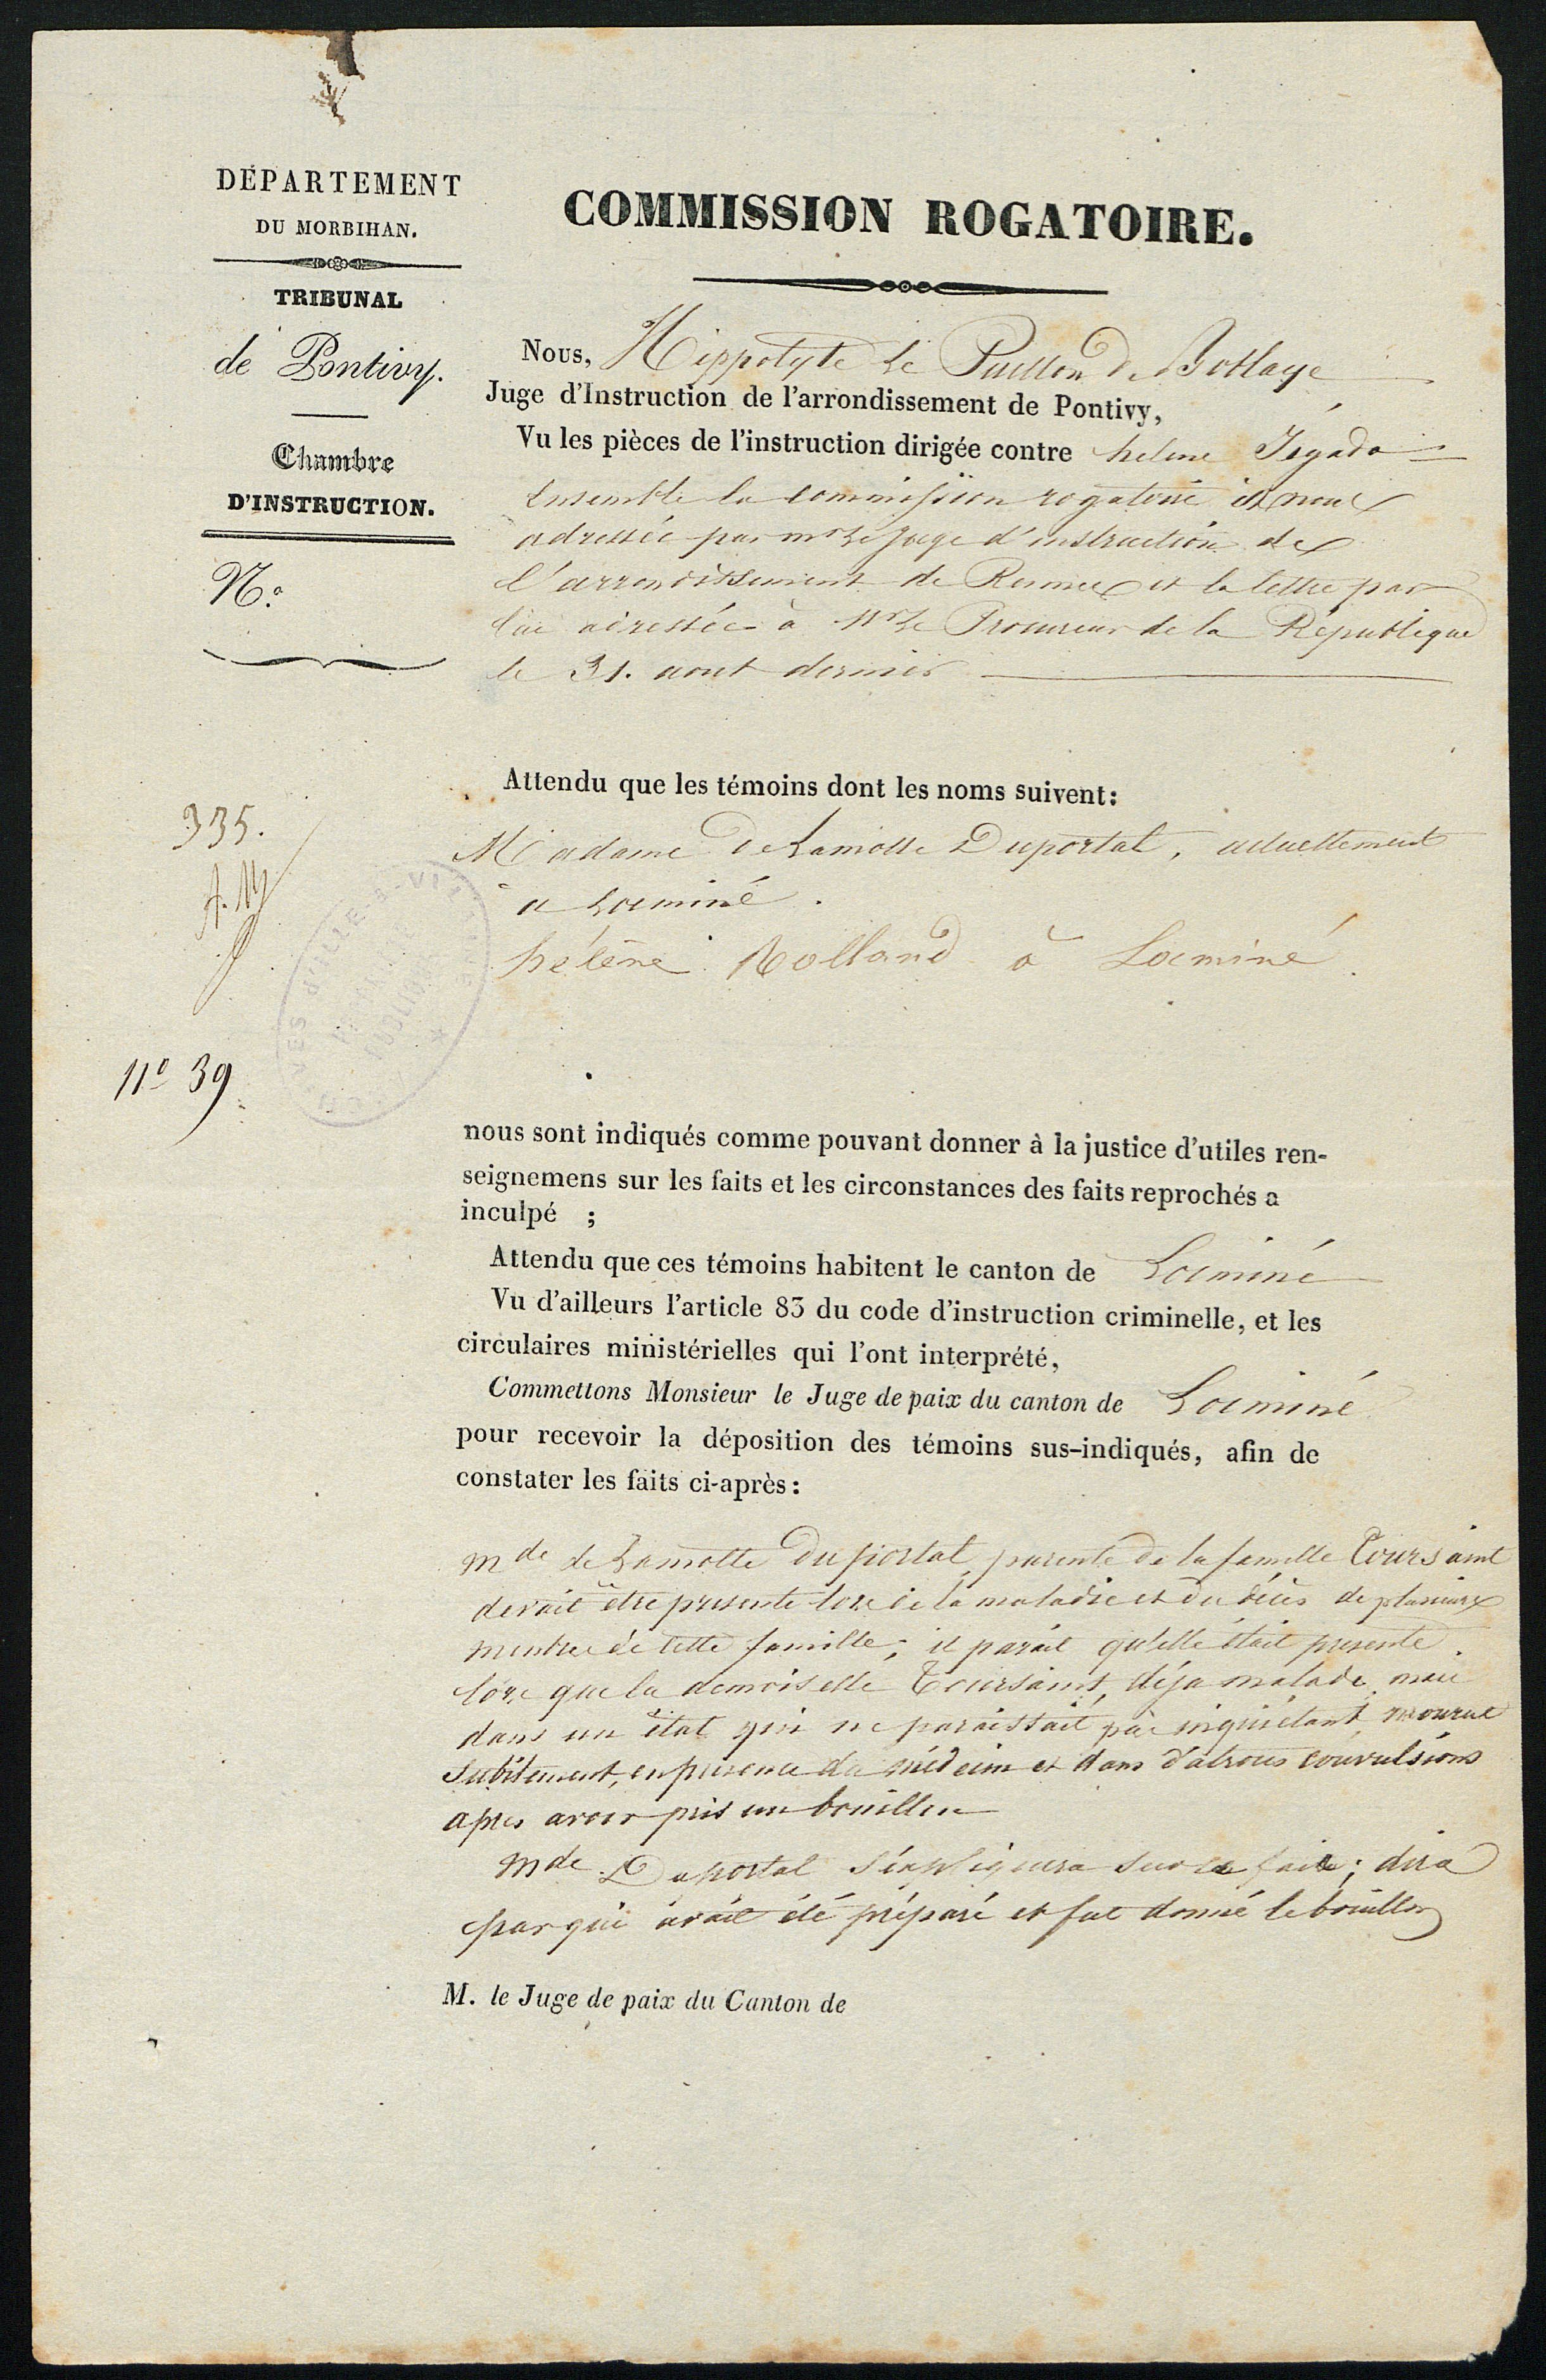 DÉPARTEMENT
DU MORBIHAN.
TRIBUNAL
de Pontivy.
Chambre
D'INSTRUCTION.
N.º
335.
A. M
Nº 39
COMMISSION ROGATOIRE.
Nous, Hippolyte Le Puillon de Boblaye
Juge d'Instruction de l'arrondissement de Pontivy,
Vu les pièces de l'instruction dirigée contre hélène Jégado
Ensemble la commission rogatoire à nous
adressée par mr le Juge d'instruction de
l'arrondissement de Rennes et la lettre par
lui adressée à Mr le Procureur de la République
le 31. aout dernier
Attendu que les témoins dont les noms suivent:
Madame de Lamotte Duportal, actuellement
a Locminé.
hélène Rolland à Locminé.
nous sont indiqués comme pouvant donner à la justice d'utiles ren-
seignemens sur les faits et les circonstances des faits reprochés a
inculpé ;
Attendu que ces témoins habitent le canton de Locminé
Vu d'ailleurs l'article 83 du code d'instruction criminelle, et les
circulaires ministérielles qui l'ont interprété,
Commettons Monsieur le Juge de paix du canton de Locminé
pour recevoir la déposition des témoins sus-indiqués, afin de
constater les faits ci-après:
mde de Lamotte Duportal, parente de la famille Toursaint
devait être presente lors de la maladie et du décès de plusieurs
membres de cette famille; il parait qu'elle était presente
lors que la demoiselle Toursaint, déja malade, mais
dans un état qui ne paraissait pas inquiétant, mourut
subitement, en presence du médecin et dans d'atroces convulsions
apres avoir pris un bouillon
mde Duportal s'expliquera sur ce fait; dira
par qui avait été préparé et fut donné le bouillon
M. le Juge de paix du Canton de